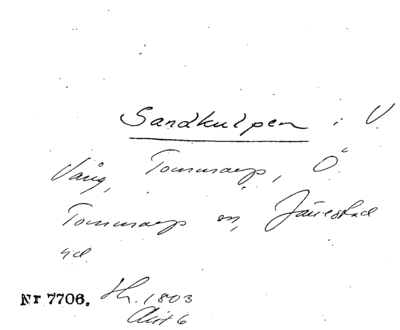 Sandkulpen i V.
Vång, Tommarp, Ö.
Tommarp sn, Järrestad
hd.
Nr 7706. H. 1803
Akt 6